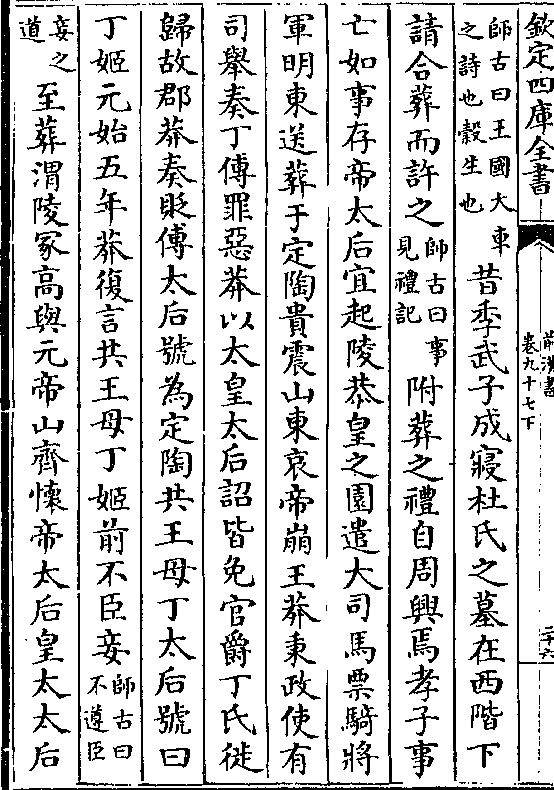 欽定四庫全書
前漢書
卷九十七下
二十六
師古曰王國大車之詩也穀生也昔季武子成寢杜氏之墓在西階下
請合葬而許之師古曰事見禮記附葬之禮自周興焉孝子事
亡如事存帝太后宜起陵恭皇之園遣大司馬票騎將
軍明東送葬于定陶貴震山東哀帝崩王莽秉政使有
司舉奏丁傅罪惡莽以太皇太后詔皆免官爵丁氏徙
歸故郡莽奏貶傅太后號為定陶共王母丁太后號曰
丁姬元始五年莽復言共王母丁姬前不臣妾師古曰不遵臣
妾之道至葬渭陵冢高與元帝山齊懷帝太后皇太太后